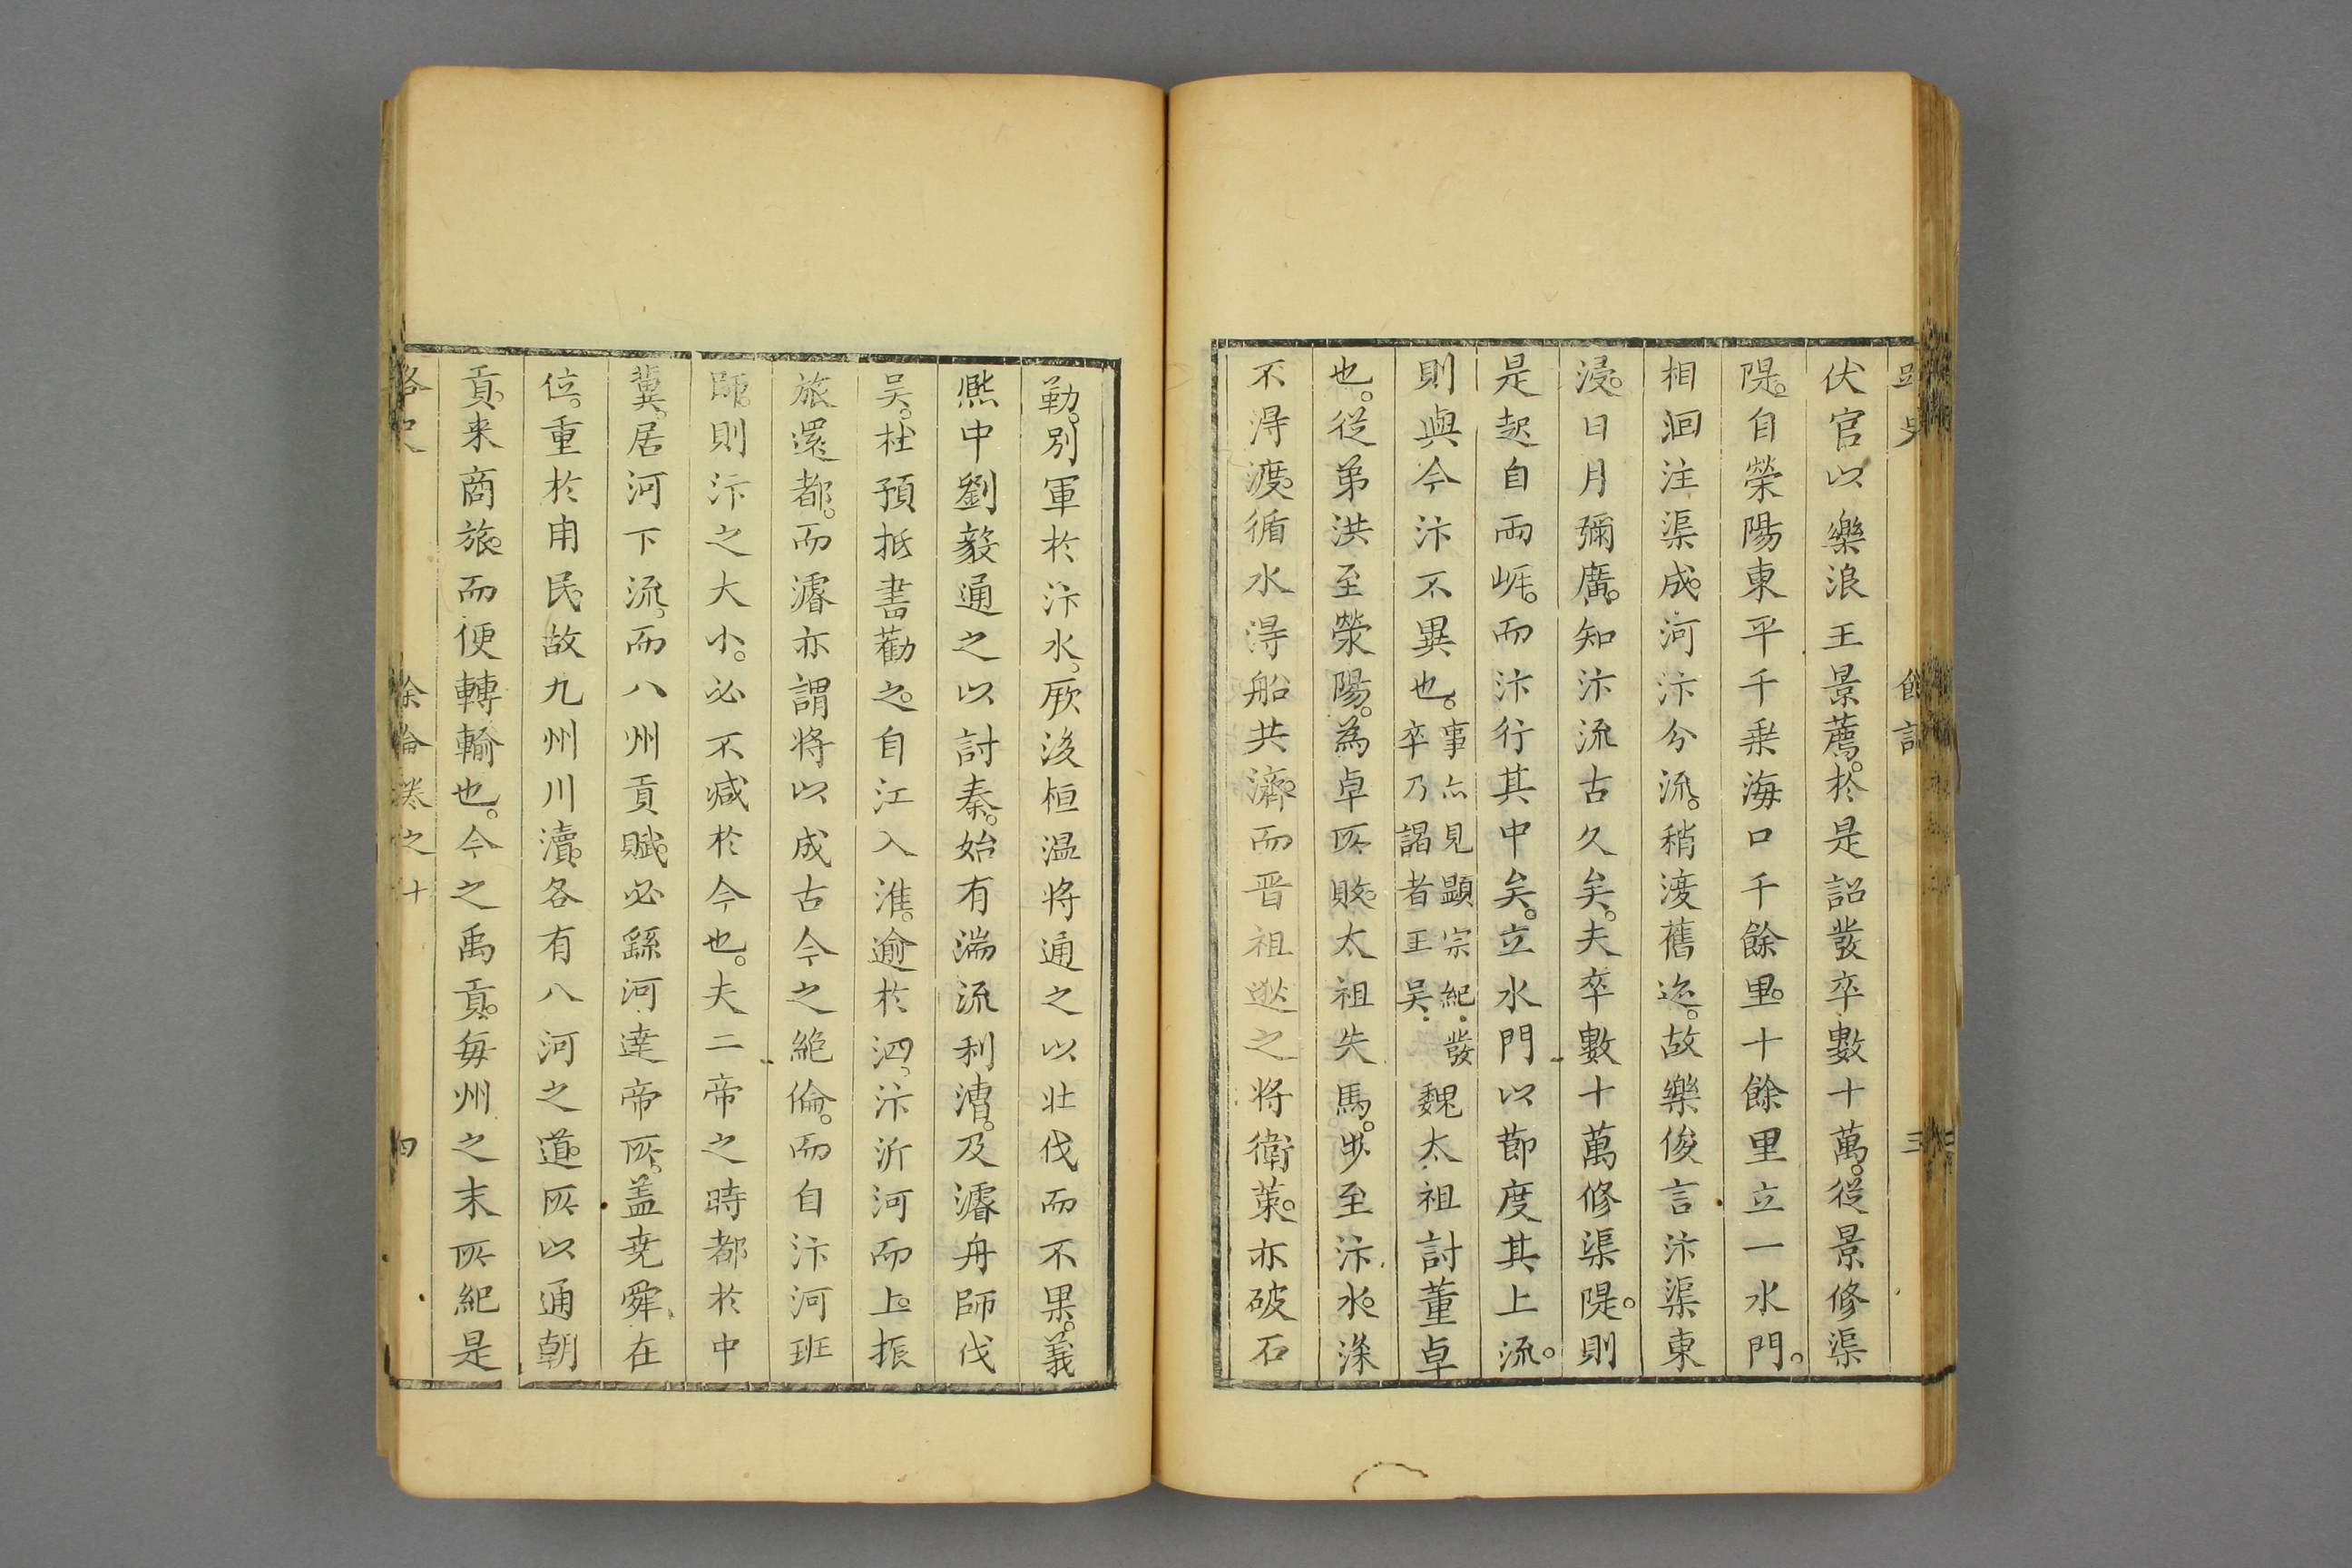 伏官以樂浪王景薦。於是詔發卒數十萬。從景修渠
隄。自滎陽東平千乗海口千餘里。十餘里立一水門。
相洄注渠成。河汴分流。稍渡舊迹。故樂俊言汴渠東
浸。日月彌廣。知汴流古久矣。夫卒數十萬修渠隄。則
是起自両崕。而汴行其中矣。立水門以節度其上流。
則與今汴不異也。事亦見顯宗紀。發卒乃謁者王吴。魏太祖討董卓
也。從弟洪至滎陽。為卓所敗。太祖失馬。步至汴水。深
不得渡。循水得船共濟。而晋祖逖之将衛策。亦破石
勒。别軍於汴水。厥後桓温将通之以壮伐而不果。義
熈中劉毅通之以討秦。始有湍流利漕。及濬舟師伐
吴。杜預抵書勸之。自江入淮。逾於泗、汴泝河而上。振
旅還都。而濬亦謂将以成古今之絶倫。而自汴河班
師。則汴之大小。必不减於今也。夫二帝之時都於中
冀。居河下流。而八州貢賦。必繇河達帝所。盖尭舜在
位。重於用民。故九州川瀆。各有八河之道。所以通朝
貢。来商旅。而便轉輸也。今之禹貢。每州之末所紀是
路史 余論卷之十 四